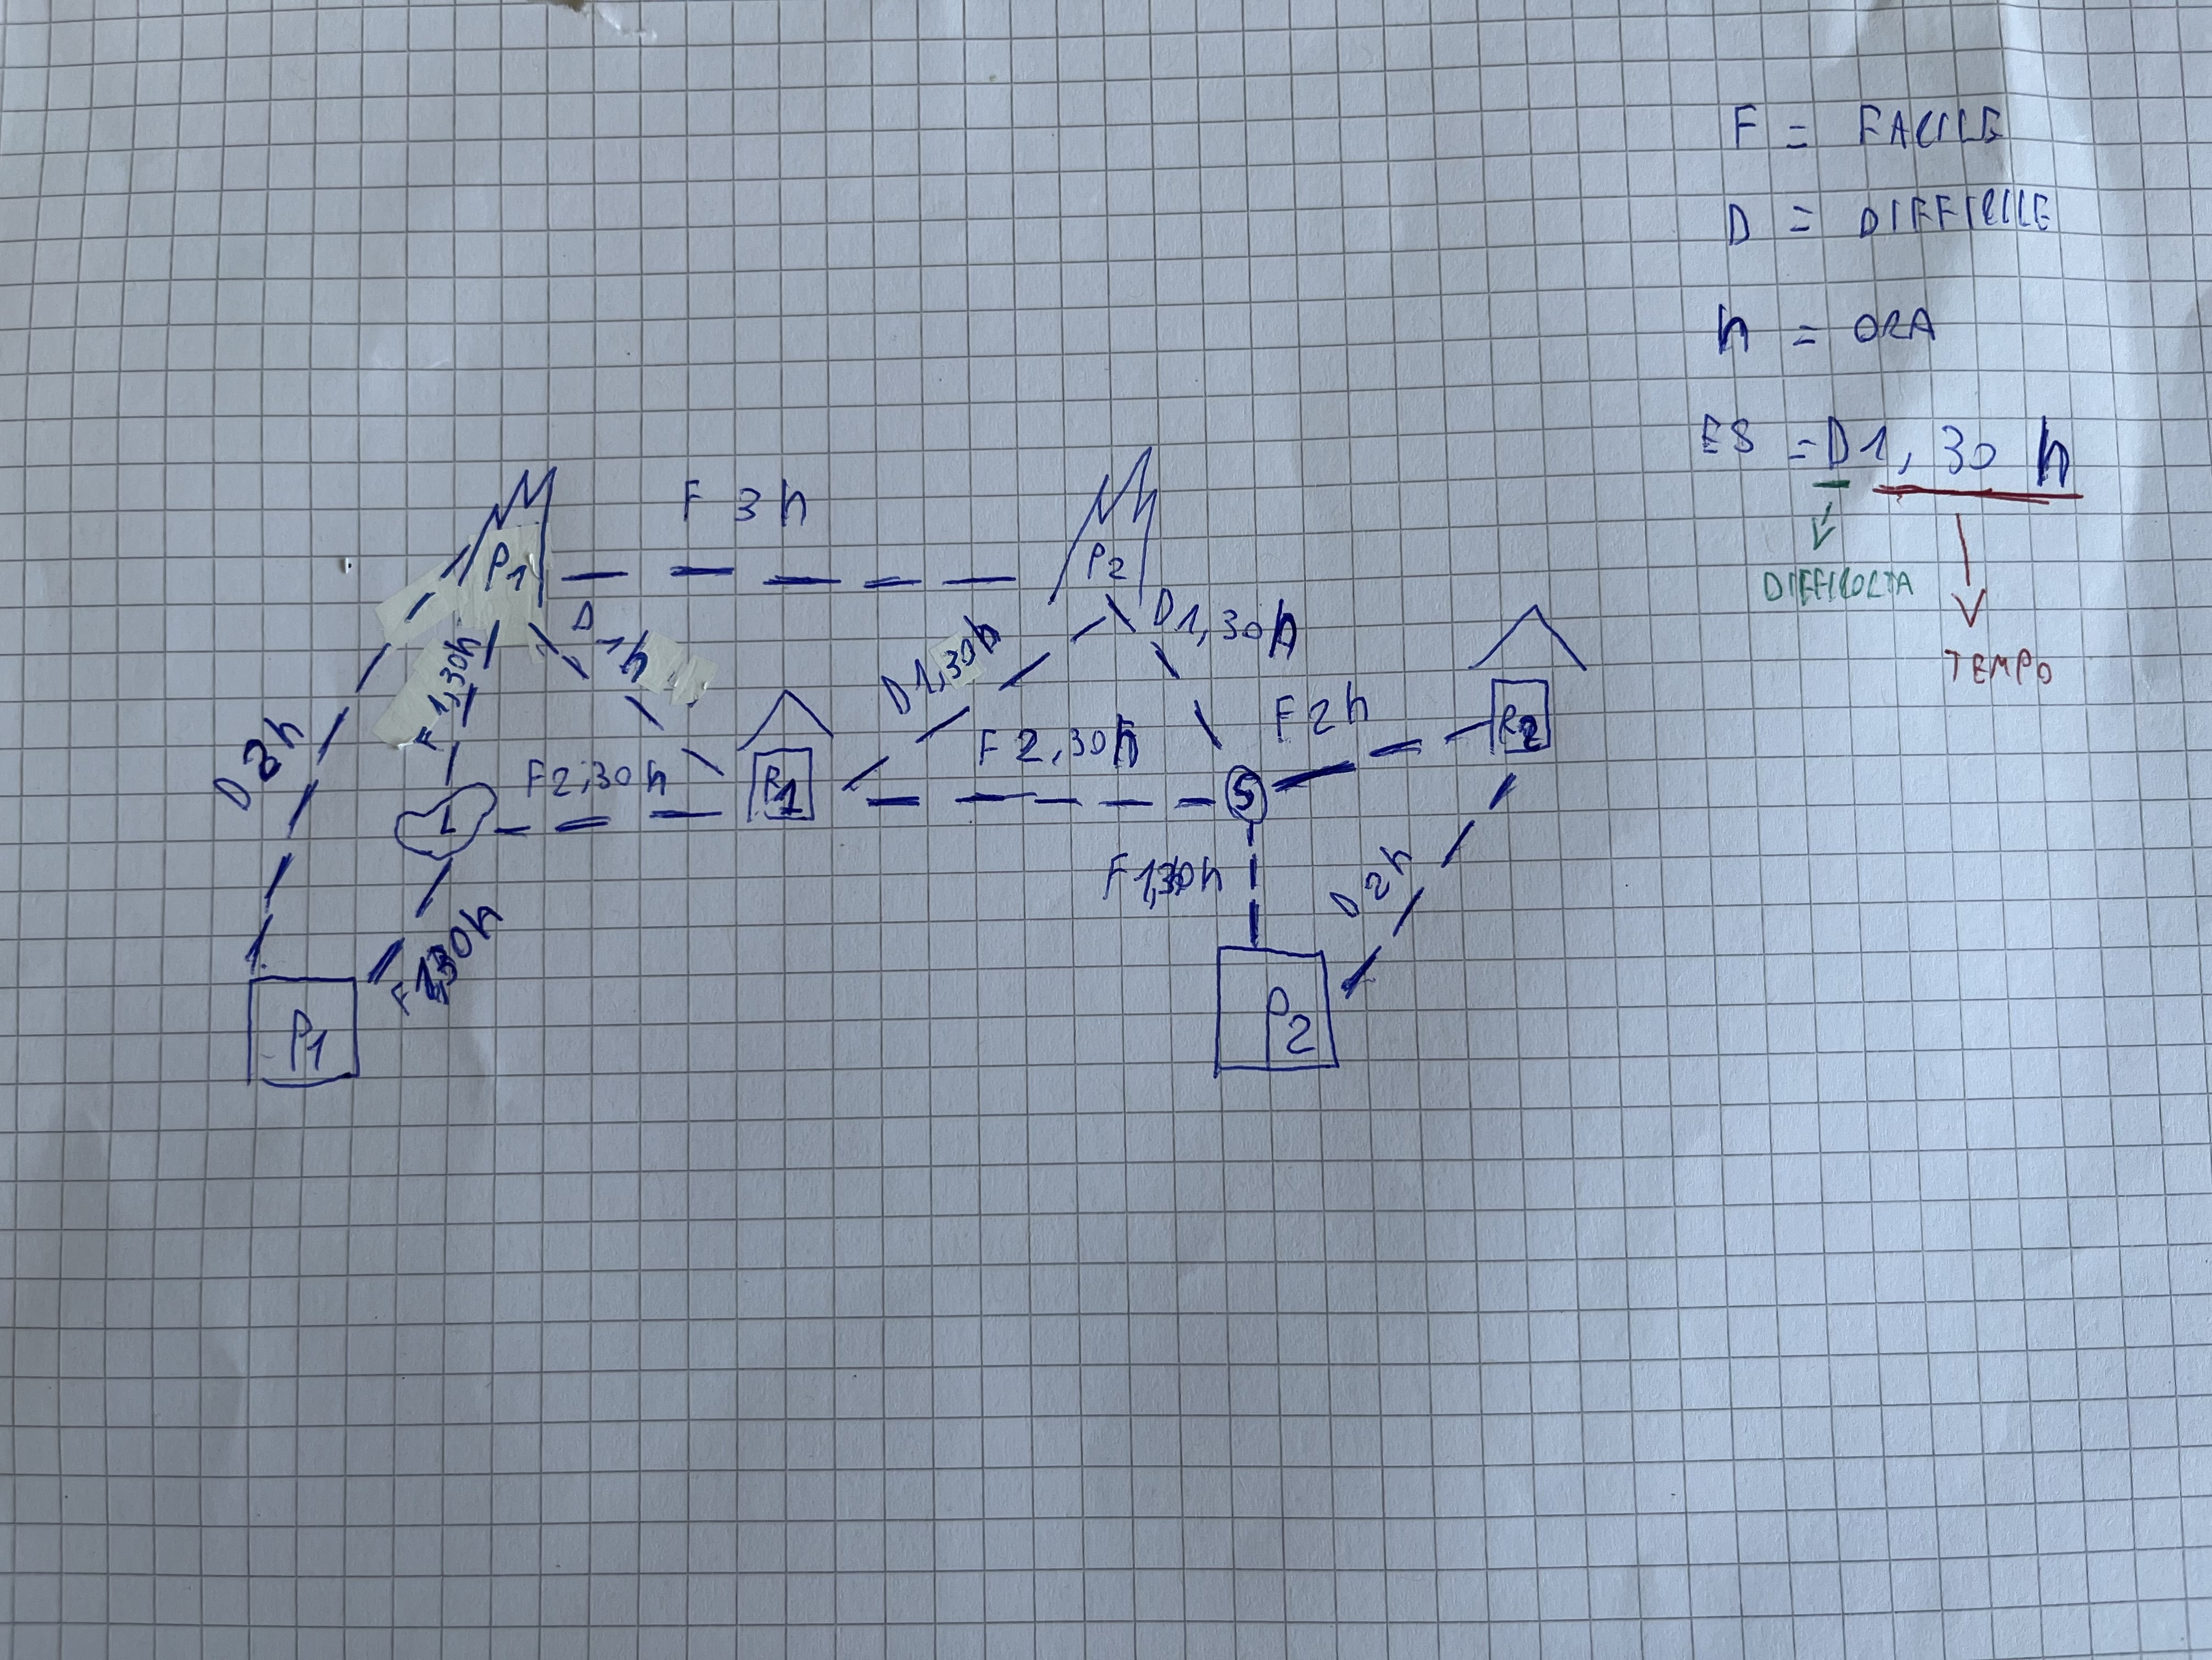 F = FACILE
D = DIFFICILE
h = ORA
ES = D1,30 h
DIFFICOLTA
TEMPO
F 3h
P1
P2
D 1h
D1,30h
D1,30h
F 1,30h
D 3h
F2,30h
R1
F2,30h
F2h
R2
L
S
F1,30h
D 2h
F1,30h
P1
P2